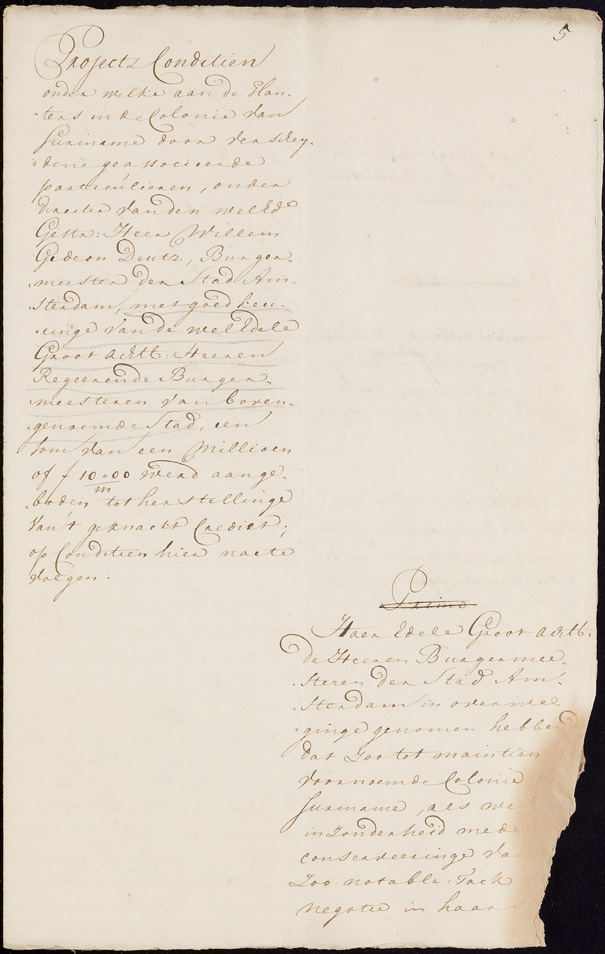 5
Projects Conditien
onder welke aan de Plan-
ters in de Colonie van
Suriname door verschey-
dene geassocieerde
particulieren, onder
directie van den welEd:
Gestr: Heer Willem
Gideon Deutz, Burger-
meester der Stad Am-
sterdam, met goedkeu-
ringe van de welEdele
Groot Achtb: Heeren
Regeerende Burger-
meesteren van boven-
genoemde Stad, een
Som van een Millioen
of ƒ 10"00/m werd aange-
boden tot herstellinge
van't geknackt Crediet;
op Conditien hier naete
volgen.
Primo
Haer Edele Groot Achtb.
de Heeren Burgermee-
steren der Stad Am-
sterdam in overwe-
ginge genomen hebben
dat zoo tot maintien
voornoemde Colonie
Suriname, als we
in zonderheid mede
conserveeringe va
Zoo notable Tack
negotie in haar